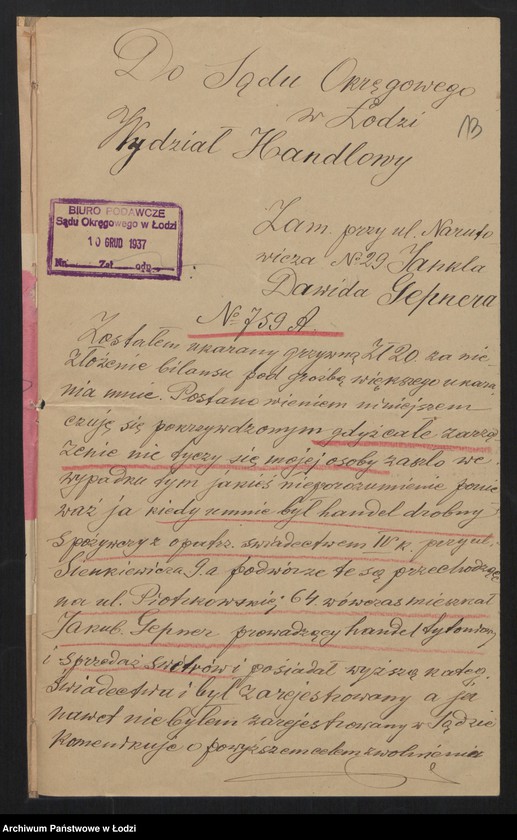 Do Sądu Okręgowego
w Łodzi
13
Wydział Handlowy
BIURO PODAWCZE
Sądu Okręgowego w Łodzi
10 GRUD 1937
Nr. Zał. odp.
Zam. przy ul. Naruto
wicza № 29 Jankla
Dawida Gepnera
№ 759 A.
Zostałem ukarany grzywną Zł 20 za nie
złożenie bilansu pod groźbą większego ukara
nia mnie. Postanowieniem niniejszem
czuję się pokrzywdzonym gdyż całe zarzą
dzenie nie tyczy się mojej osoby zaszło we
wypadku tym jakieś nieporozumienie ponie
waż ja kiedy umnie był handel drobny
spożywczy z opatrz. świadectwem IV k. przy ul.
Sienkiewicza 9. a podwórze te są przechodzące
na ul. Piotrkowskiej 64 wówczas mieszkał
Jakub Gepner prowadzący handel tytoniowy
i sprzedaż swetrów i posiadał wyższą kateg.
świadectwa i był zarejestrowany a ja
nawet nie byłem zarejestrowany w Sądzie
Komunikuje o powyższem celem zwolnienia
Archiwum Państwowe w Łodzi